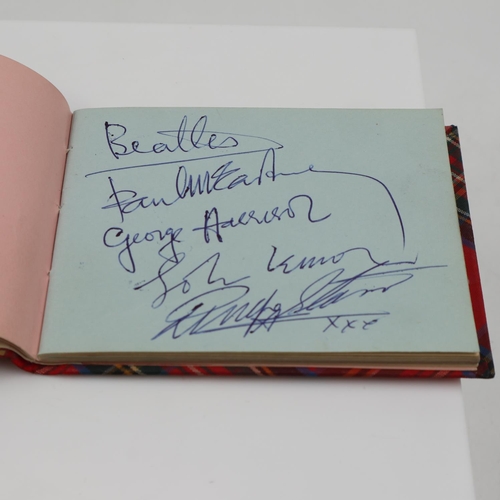 Beatles
Paul McCartney
George Harrison
John Lennon
Ringo Starr
xxx